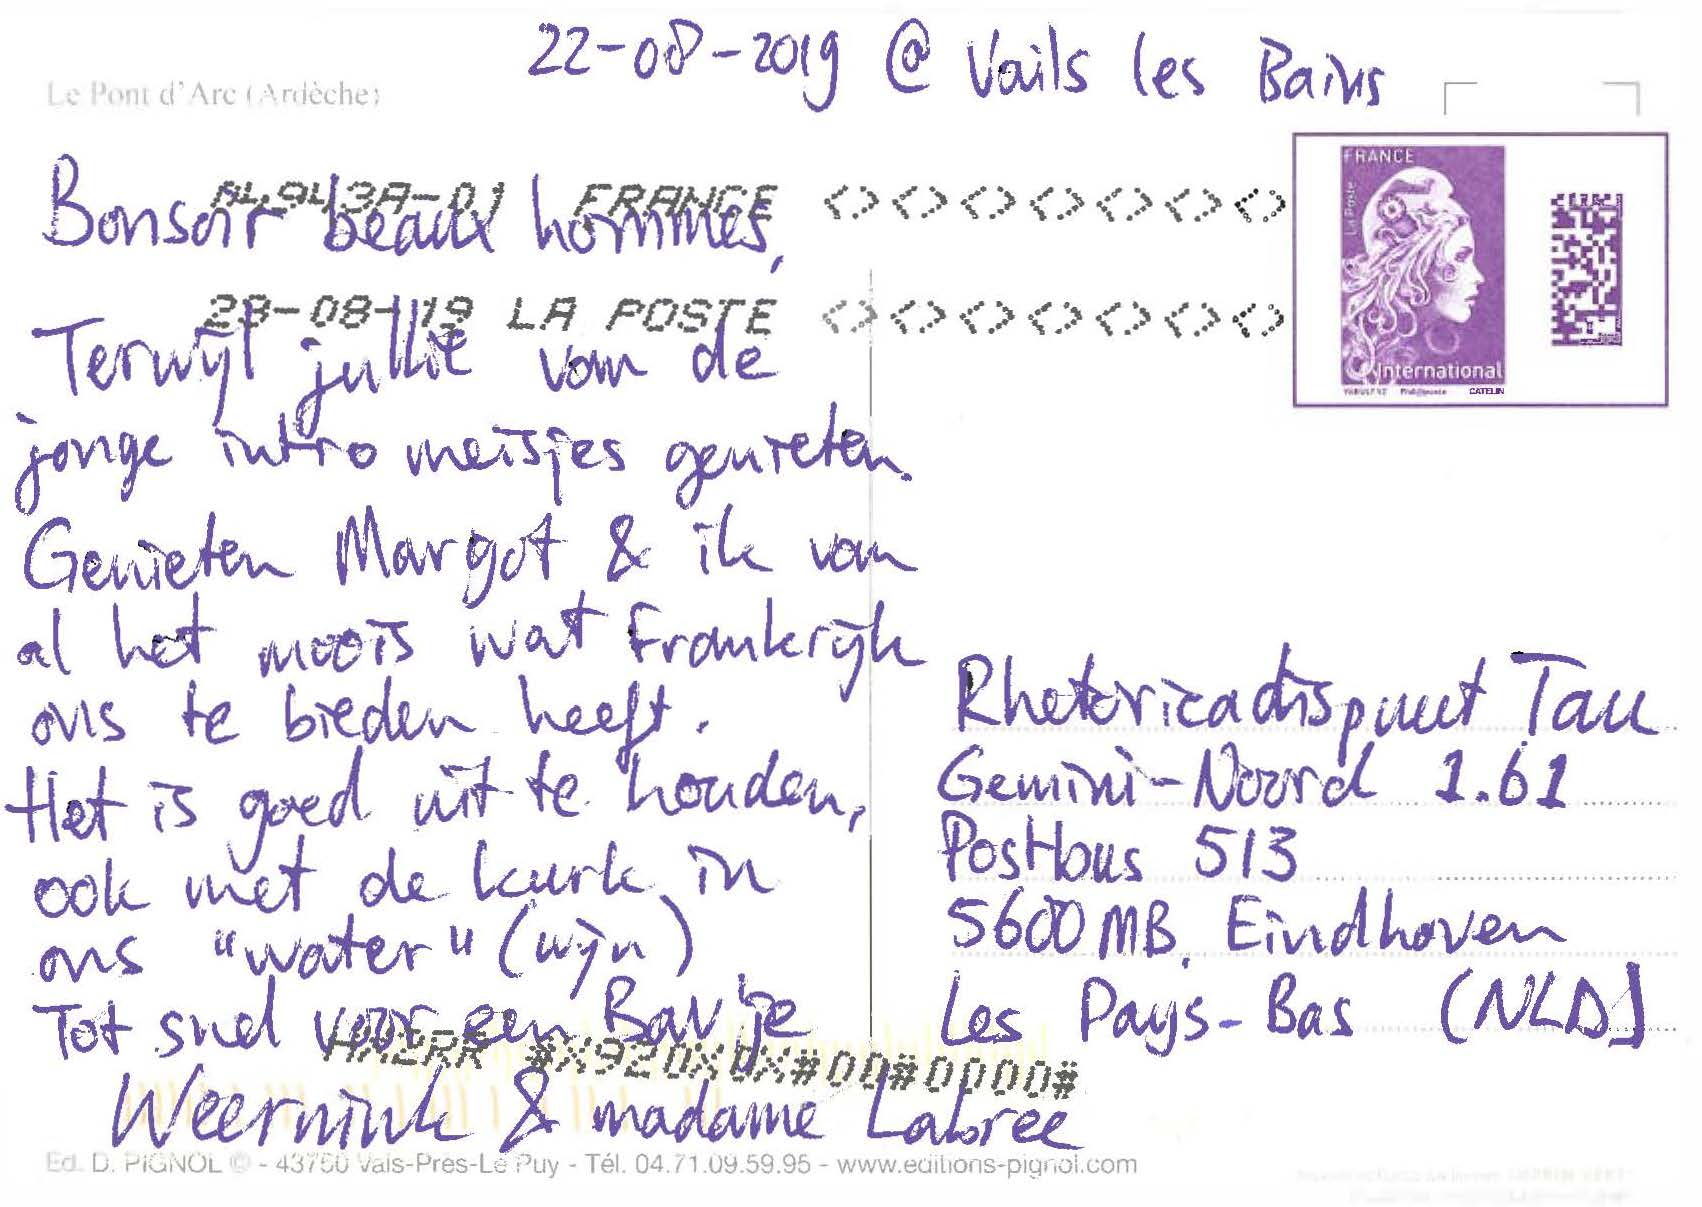 22-08-2019 @ Vails les Bains
Le Pont d'Arc (Ardèche)
FRANCE
La Poste
International
PhilAposte CATELIN
A4943A-01 FRANCE
28-08-19 LA POSTE
Bonsoir beaux hommes,
Terwijl jullie van de
jonge intro meisjes genieten.
Genieten Margot & ik van
al het moois wat Frankrijk
ons te bieden heeft.
Het is goed uit te houden,
ook met de kurk in
ons "water" (wijn)
Tot snel voor een Bavje
Weernink & madame Labree
Rhetoricadispuut Tau
Gemini-Noord 1.61
Postbus 513
5600 MB, Eindhoven
Les Pays-Bas (NLD)
Ed. D. PIGNOL © - 43750 Vals-Près-Le Puy - Tél. 04.71.09.59.95 - www.editions-pignol.com